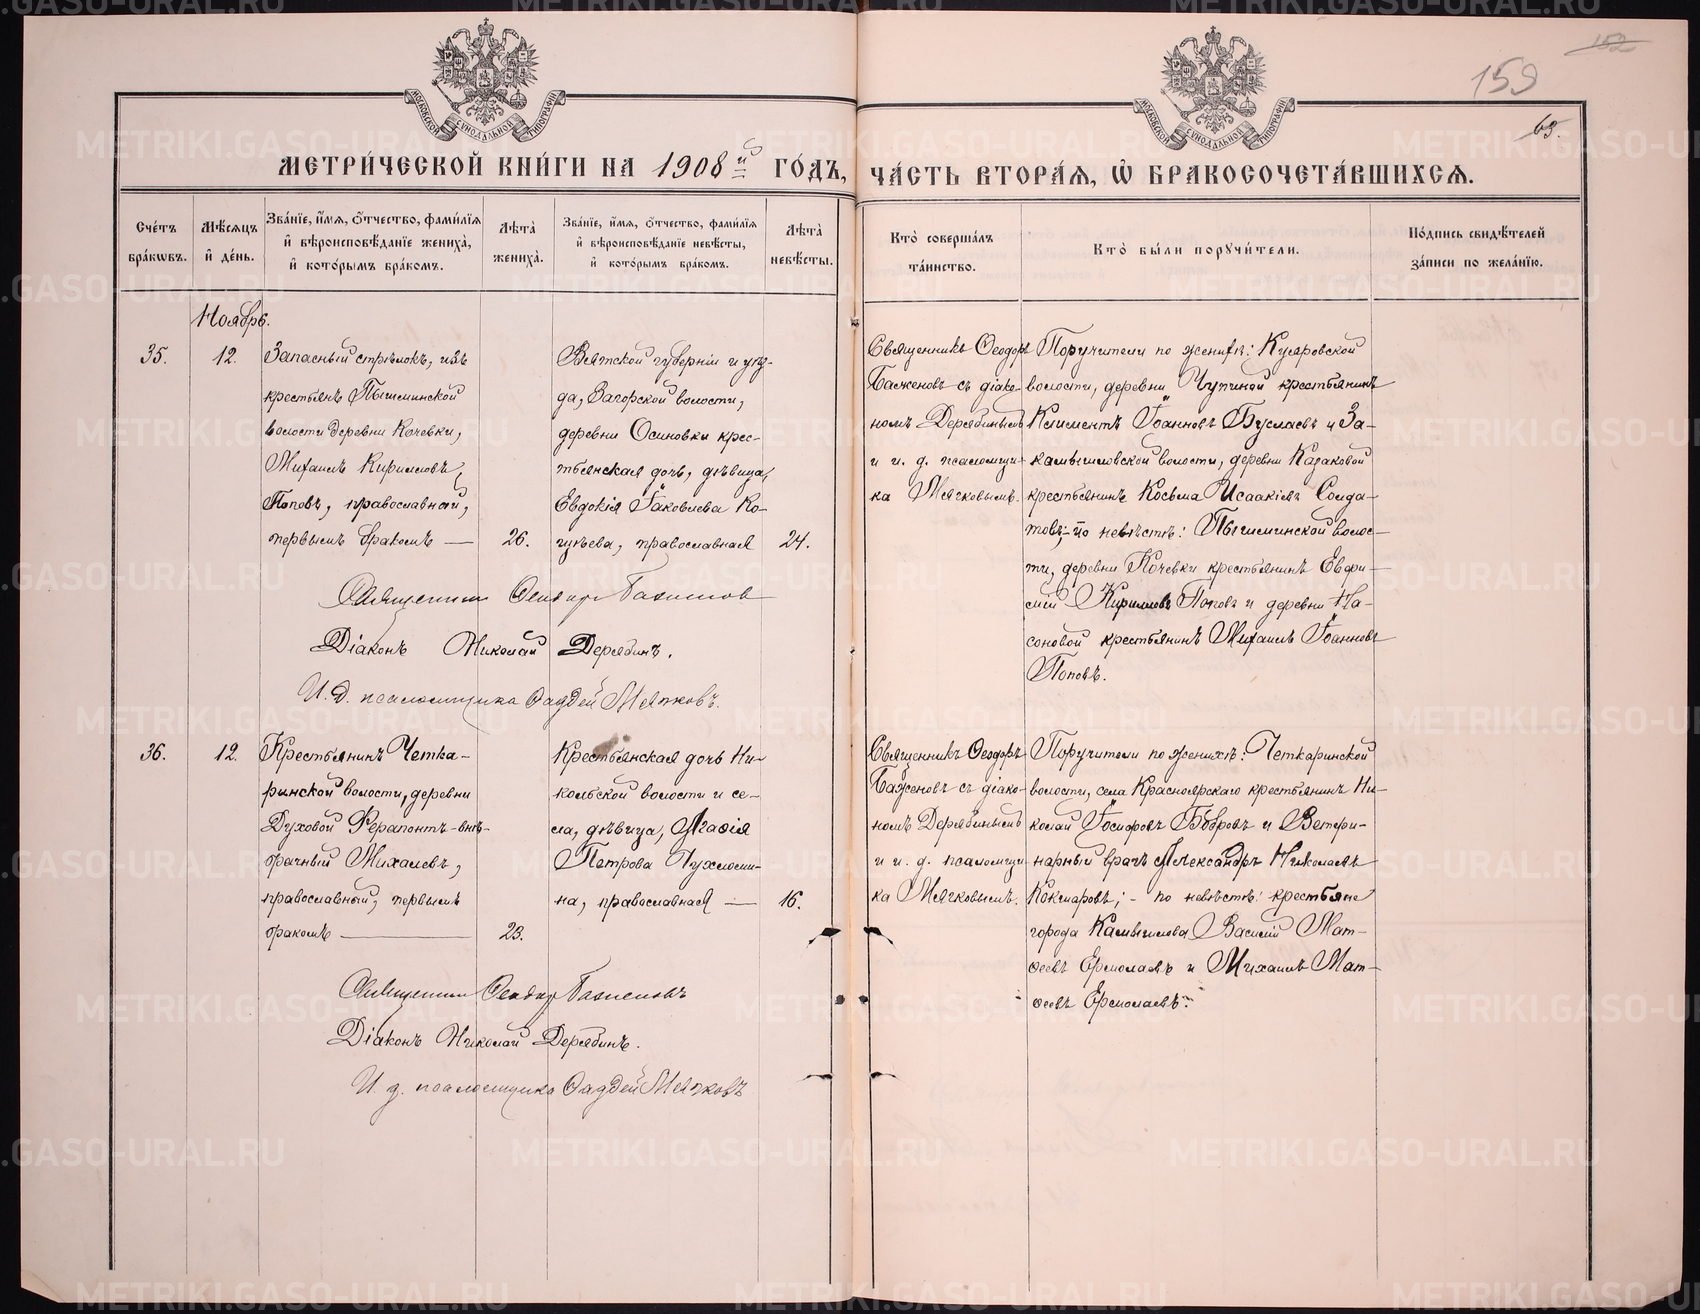 152
159
63.
МОСКОВСКОЙ СУНОДАЛЬНОЙ ТИПОГРАФИИ
МОСКОВСКОЙ СУНОДАЛЬНОЙ ТИПОГРАФИИ
МЕТРИ́ЧЕСКОЙ КНИ́ГИ НА 1908й ГО́ДЪ, ЧА́СТЬ ВТОРА́Ѧ, Ѽ БРАКОСОЧЕТА́ВШИХСѦ.
Сче́тъ бра́кѡвъ.
Мѣ́сѧцъ и҆ де́нь.
Зва́нїе, и҆́мѧ, ѻ҆́тчество, фами́лїѧ и҆ вѣроисповѣ́данїе жениха̀, и҆ кото́рымъ бра́комъ.
Лѣ́та̀ жениха̀.
Зва́нїе, и҆́мѧ, ѻ҆́тчество, фами́лїѧ и҆ вѣроисповѣ́данїе невѣ́сты, и҆ кото́рымъ бра́комъ.
Лѣ́та̀ невѣ́сты.
Кто̀ соверша́лъ та́инство.
Кто̀ бы́ли порꙋчи́тели.
По́дпись свидѣ́телей за́писи по жела́нїю.
Ноябрь.
35.
12.
Запасный стрѣлокъ, изъ
крестьянъ Пышминской
волости деревни Кочевки,
Михаилъ Кирилловъ
Поповъ, православный,
первымъ бракомъ —
26.
Вятской губерніи и уѣз-
да, Загорской волости,
деревни Осиновки крес-
тьянская дочь, дѣвица,
Евдокія Іаковлева Ко-
чуѣева, православная
24.
Священникъ Ѳеодоръ
Баженовъ съ діако-
номъ Дерябинымъ
и и. д. псаломщи-
ка Мягковымъ.
Поручители по женихѣ: Куяровской
волости, деревни Чупиной крестьянинъ
Климентъ Іоанновъ Буслаевъ и За-
камышловской волости, деревни Казаковой
крестьянинъ Косьма Исаакіевъ Солда-
товъ; - по невѣстѣ: Пышминской волос-
ти, деревни Кочевки крестьянинъ Евфи-
мій Кирилловъ Поповъ и деревни На-
соновой крестьянинъ Михаилъ Іоанновъ
Поповъ.
Священникъ Ѳеодоръ Баженовъ
Діаконъ Николай Дерябинъ.
И. д. псаломщика Ѳаддей Мягковъ.
36.
12.
Крестьянинъ Четка-
ринской волости, деревни
Духовой Ферапонтъ - внѣ-
брачный Михалевъ,
православный, первымъ
бракомъ —
23.
Крестьянская дочь Ни-
кольской волости и се-
ла, дѣвица, Агафія
Петрова Пухломи-
на, православная —
16.
Священникъ Ѳеодоръ
Баженовъ съ діако-
номъ Дерябинымъ
и и. д. псаломщи-
ка Мягковымъ.
Поручители по женихѣ: Четкаринской
волости, села Красноярскаго крестьянинъ Ни-
колай Іосифовъ Бобровъ и Ветери-
нарный врачъ Александръ Николаевъ
Кокшаровъ; - по невѣстѣ: крестьяне
города Камышлова Василій Мат-
ѳеевъ Ермолаевъ и Михаилъ Мат-
ѳеевъ Ермолаевъ.
Священникъ Ѳеодоръ Баженовъ
Діаконъ Николай Дерябинъ.
И. д. псаломщика Ѳаддей Мягковъ
METRIKI.GASO-URAL.RU